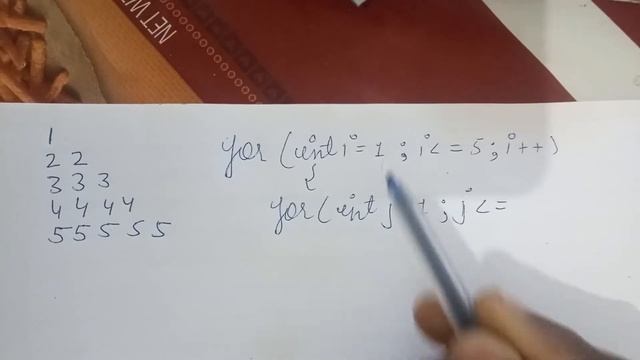 NET WE
1
2 2
3 3 3
4 4 4 4
5 5 5 5 5
for (int i = 1 ; i <= 5 ; i++)
{
for (int j ; j <=